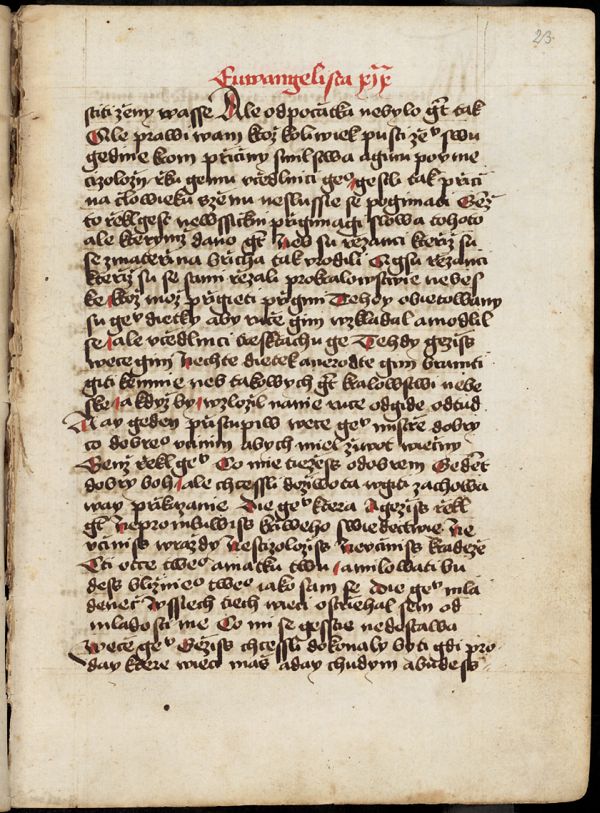 23
Euwangelista xix
stiti ženy wasse Ale odpočatka nebylo gt tak
Ale prawi wam ktož koliwiek pusti žeu swu
gedine kom přičiny smilstwa aginu poyme
cizoloži řku gemu učedlnici geo gestli tak při či
na člowieku sženu neslussie se poginati
to řekl gest newssickni přigimagi slowa tohoto
ale kterymž dano gt Neb su řezanci kteřiž su
se zmateř na břicha tak rodili Agsu řezanci
kteřiž su se sami řezali prokralowstwie nebes
ke ktož mož přigieti přigmi Tehdy obietowany
su geu dietky aby ruce gim wzkladal amodlil
se ale učedlnici třesktachu ge Tehdy geziss
wece gim Nechte dietek anerodte gim braniti
giti kemnie neb takowych gt kralowstwi nebe
ske a když by wzložil nanie ruce odgide odtud
A ay geden přistupiw wece geu mistře dobry
co dobreo učinim abych miel život wiečny
Genž řekl geu Co mie tiežess odobrem
dobry boh ale chcessli doživota wgiti zachowa
way přikazanie Die geu ktera Ageziss řekl
gt Nepromluwiss křiweho swiedectwie Ne
učiniss wraždy Nescizoložiss Neučiniss kradeže
Cti otce tweo amatku twu amilowati bu
dess bližnieo tweo iako sam se Die geu mla
denec Wssiech tiech wieci ostřiehal sem od
mladosti me Co mi se gesstie nedostawa
Wece geu Gežiss chcessli dokonaly byti gdi pro
day ktere wieci mas aday chudym abudess